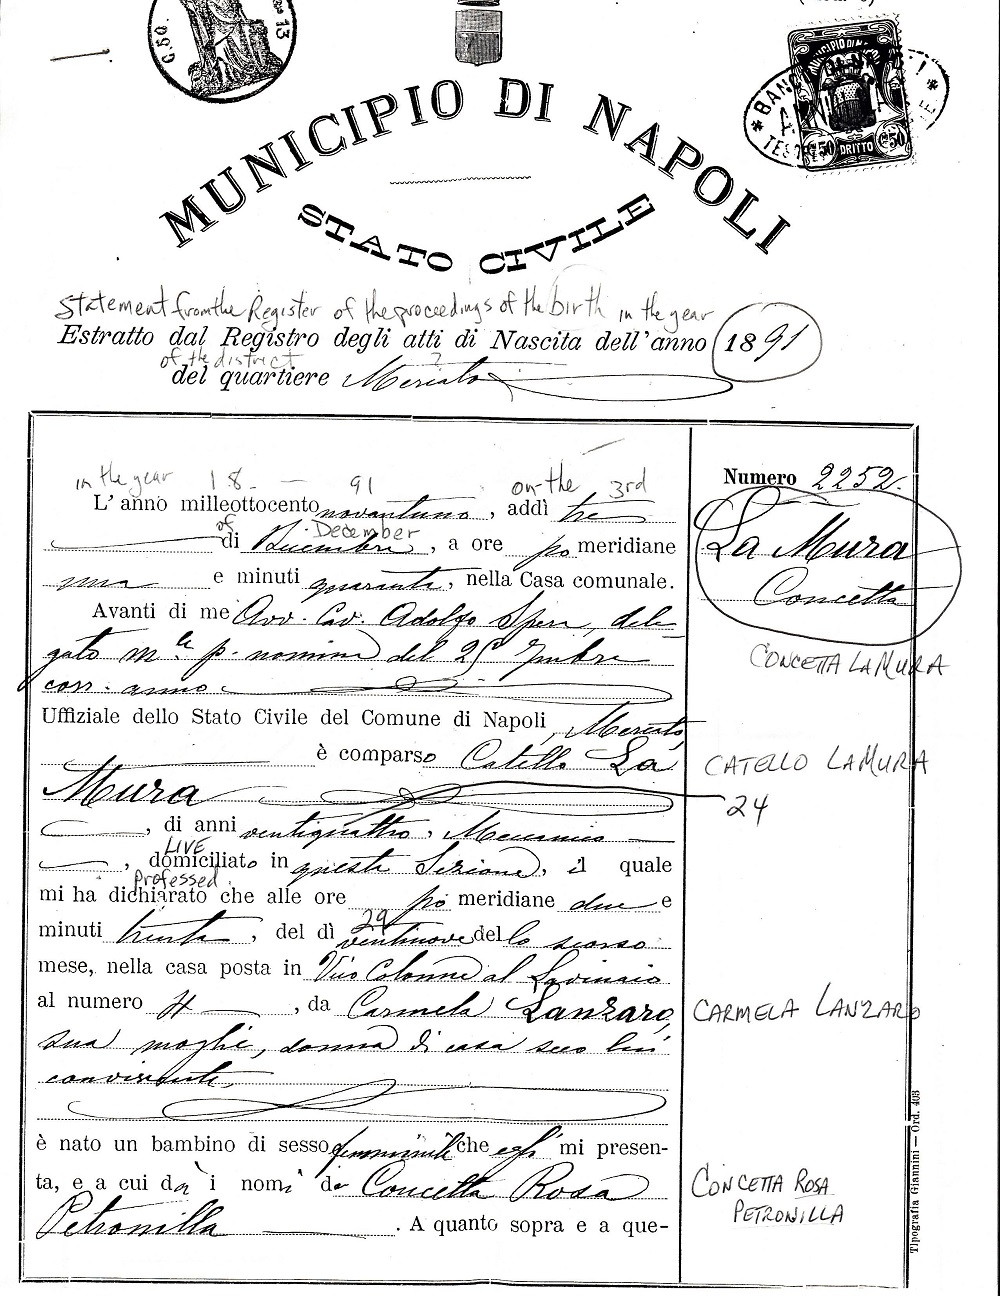 C. 50
13
BANC
TES
MUNICIPIO DI
C. 50 DRITTO C. 50
MUNICIPIO DI NAPOLI
STATO CIVILE
Statement from the Register of the proceedings of the birth in the year
Estratto dal Registro degli atti di Nascita dell'anno 1891
of the district ?
del quartiere Mercato
in the year 18 - 91 on the 3rd
Numero 2252.
L'anno milleottocento novantuno, addì tre
of December
di Dicembre, a ore po meridiane
La Mura
una e minuti quaranta, nella Casa comunale.
Concetta
Avanti di me Avv. Cav. Adolfo Spera, dele-
gato m.le p. nomina del 25 7mbre
CONCETTA LAMURA
corr. anno
Uffiziale dello Stato Civile del Comune di Napoli, Mercato,
è comparso Catello La
CATELLO LAMURA
Mura
24
, di anni ventiquattro, Meccanico
LIVE
, domiciliato in questa Sezione, il quale
Professed
mi ha dichiarato che alle ore po meridiane due e
29
minuti trenta, del dì ventinove dello scorso
mese, nella casa posta in Vico Colonne al Lavinaio
al numero 4, da Carmela Lanzaro,
CARMELA LANZARO
sua moglie, donna di casa seco lui
convivente,
è nato un bambino di sesso femminile che egli mi presen-
ta, e a cui dà i nomi di Concetta Rosa
CONCETTA ROSA
PETRONILLA
Petronilla. A quanto sopra e a que-
Tipografia Giannini — Ord. 403